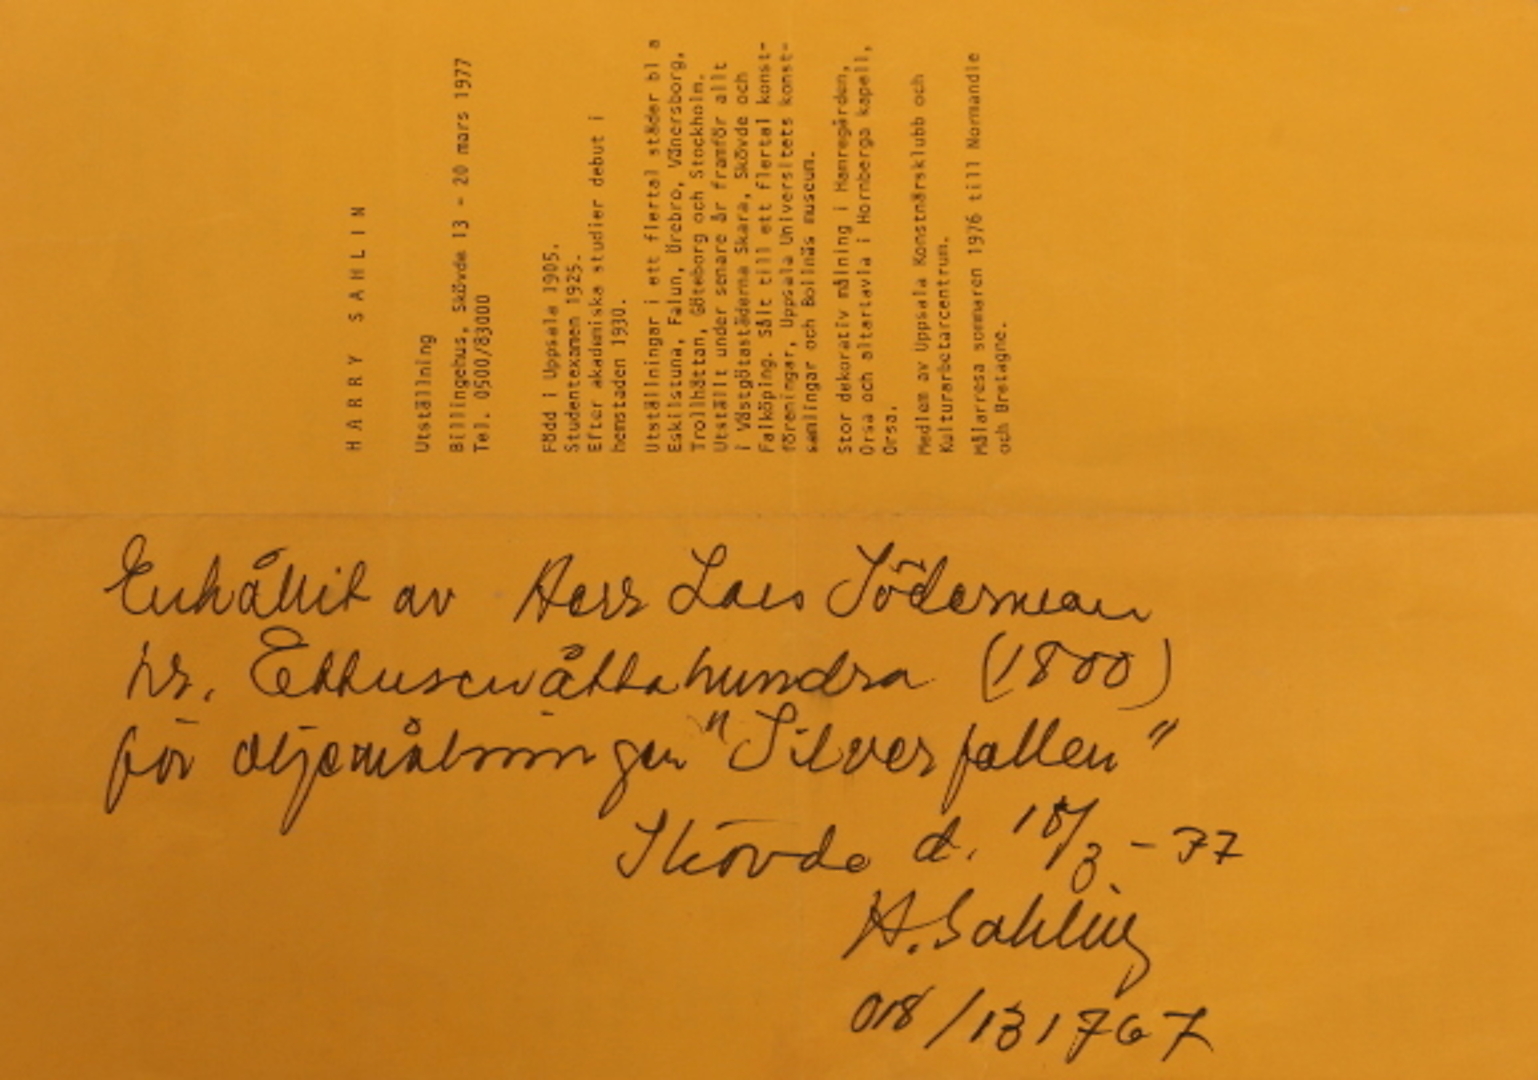 HARRY SAHLIN
Utställning
Billingehus, Skövde 13 - 20 mars 1977
Tel. 0500/83000
Född i Uppsala 1905.
Studentexamen 1925.
Efter akademiska studier debut i
hemstaden 1930.
Utställningar i ett flertal städer bl a
Eskilstuna, Falun, Örebro, Vänersborg,
Trollhättan, Göteborg och Stockholm.
Utställt under senare år framför allt
i Västgötastäderna Skara, Skövde och
Falköping. Sålt till ett flertal konst-
föreningar, Uppsala Universitets konst-
samlingar och Bollnäs museum.
Stor dekorativ målning i Hamregården,
Orsa och altartavla i Hornberga kapell,
Orsa.
Medlem av Uppsala Konstnärsklubb och
Kulturarbetarcentrum.
Målarresa sommaren 1976 till Normandie
och Bretagne.
Erhållit av Herr Lars Söderman
kr. Ettusenåttahundra (1800)
för oljemålningen "Silverfallen"
Skövde d. /3 - 77
H. Sahlin
018/131767